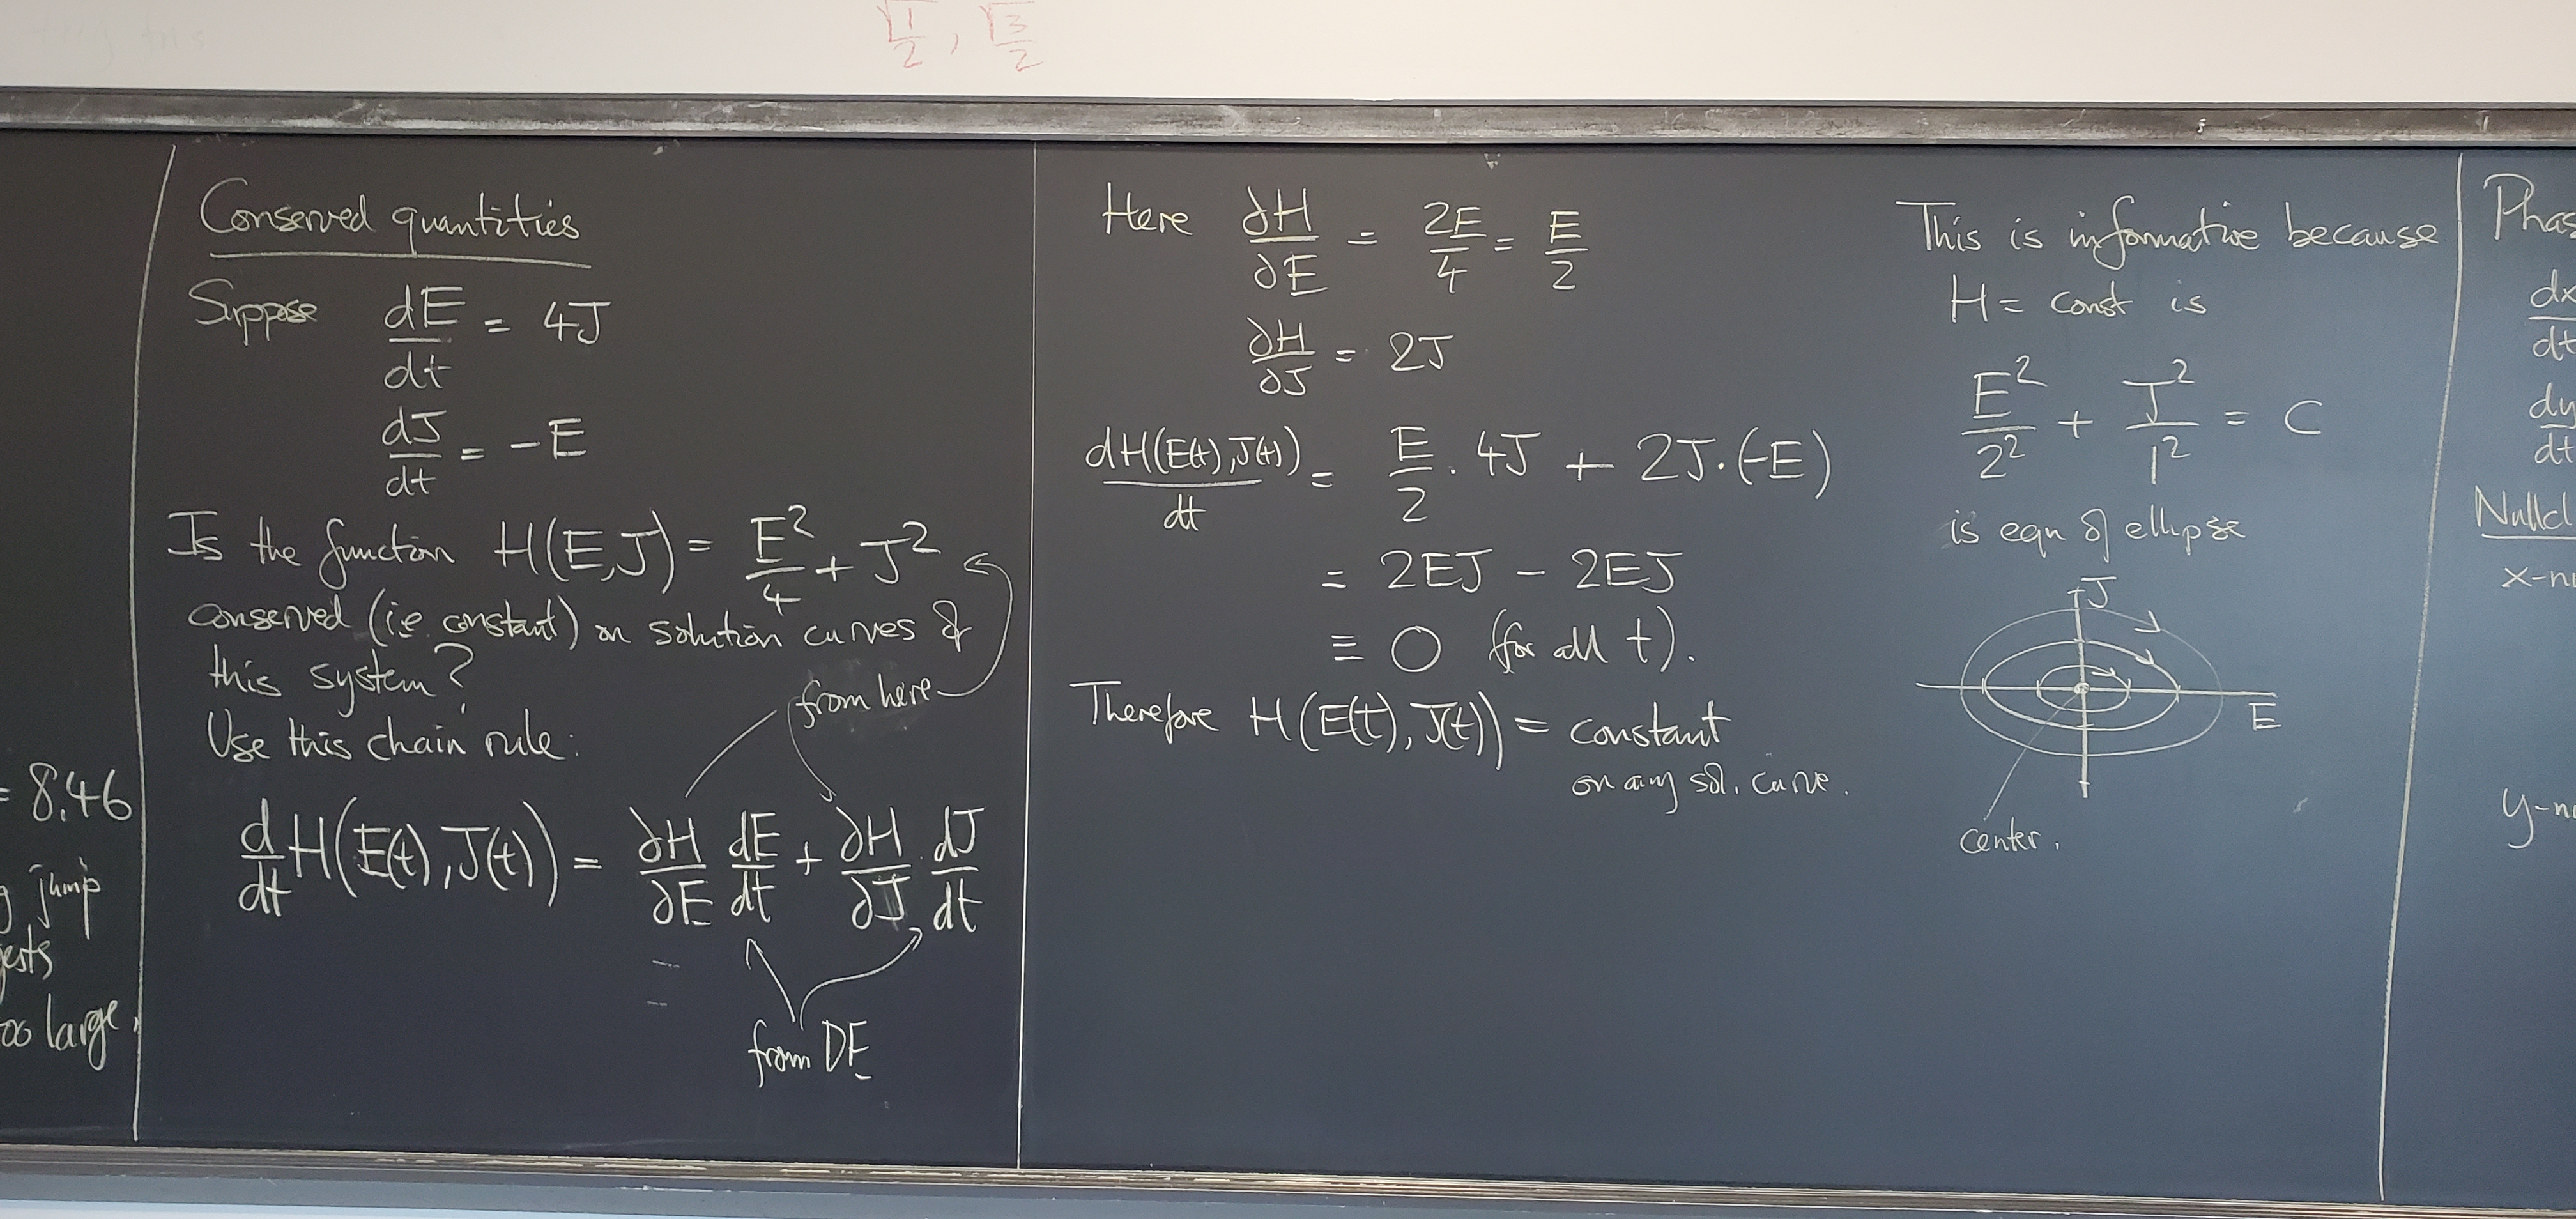 √1/2, √3/2
= 8.46
jump
too large.
Conserved quantities
Suppose dE/dt = 4J
dJ/dt = -E
Is the function H(E,J) = E²/4 + J²
conserved (i.e. constant) on solution curves of
this system?
from here
Use this chain rule:
d/dt H(E(t),J(t)) = ∂H/∂E dE/dt + ∂H/∂J · dJ/dt
from DE
Here ∂H/∂E = 2E/4 = E/2
∂H/∂J = 2J
dH(E(t),J(t))/dt = E/2 · 4J + 2J·(-E)
= 2EJ - 2EJ
≡ 0 (for all t).
Therefore H(E(t),J(t)) = constant
on any sol. curve.
This is informative because
H = const is
E²/2² + J²/1² = C
is eqn of ellipse
J
E
center.
Phas
dx/dt
dy/dt
Nullcl
x-nu
y-nu